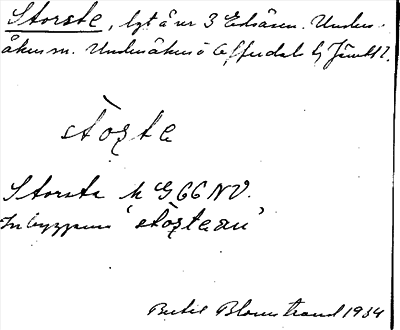 Storste, lgt å nr 3 Edsåsen. Under-
åkers sn. Undersåkers o Offerdal tg Jämtl l.
stòʂte
Storste k G 66 NV.
Inbyggarna 'stòʂtean'
Bertil Blomstrand 1934